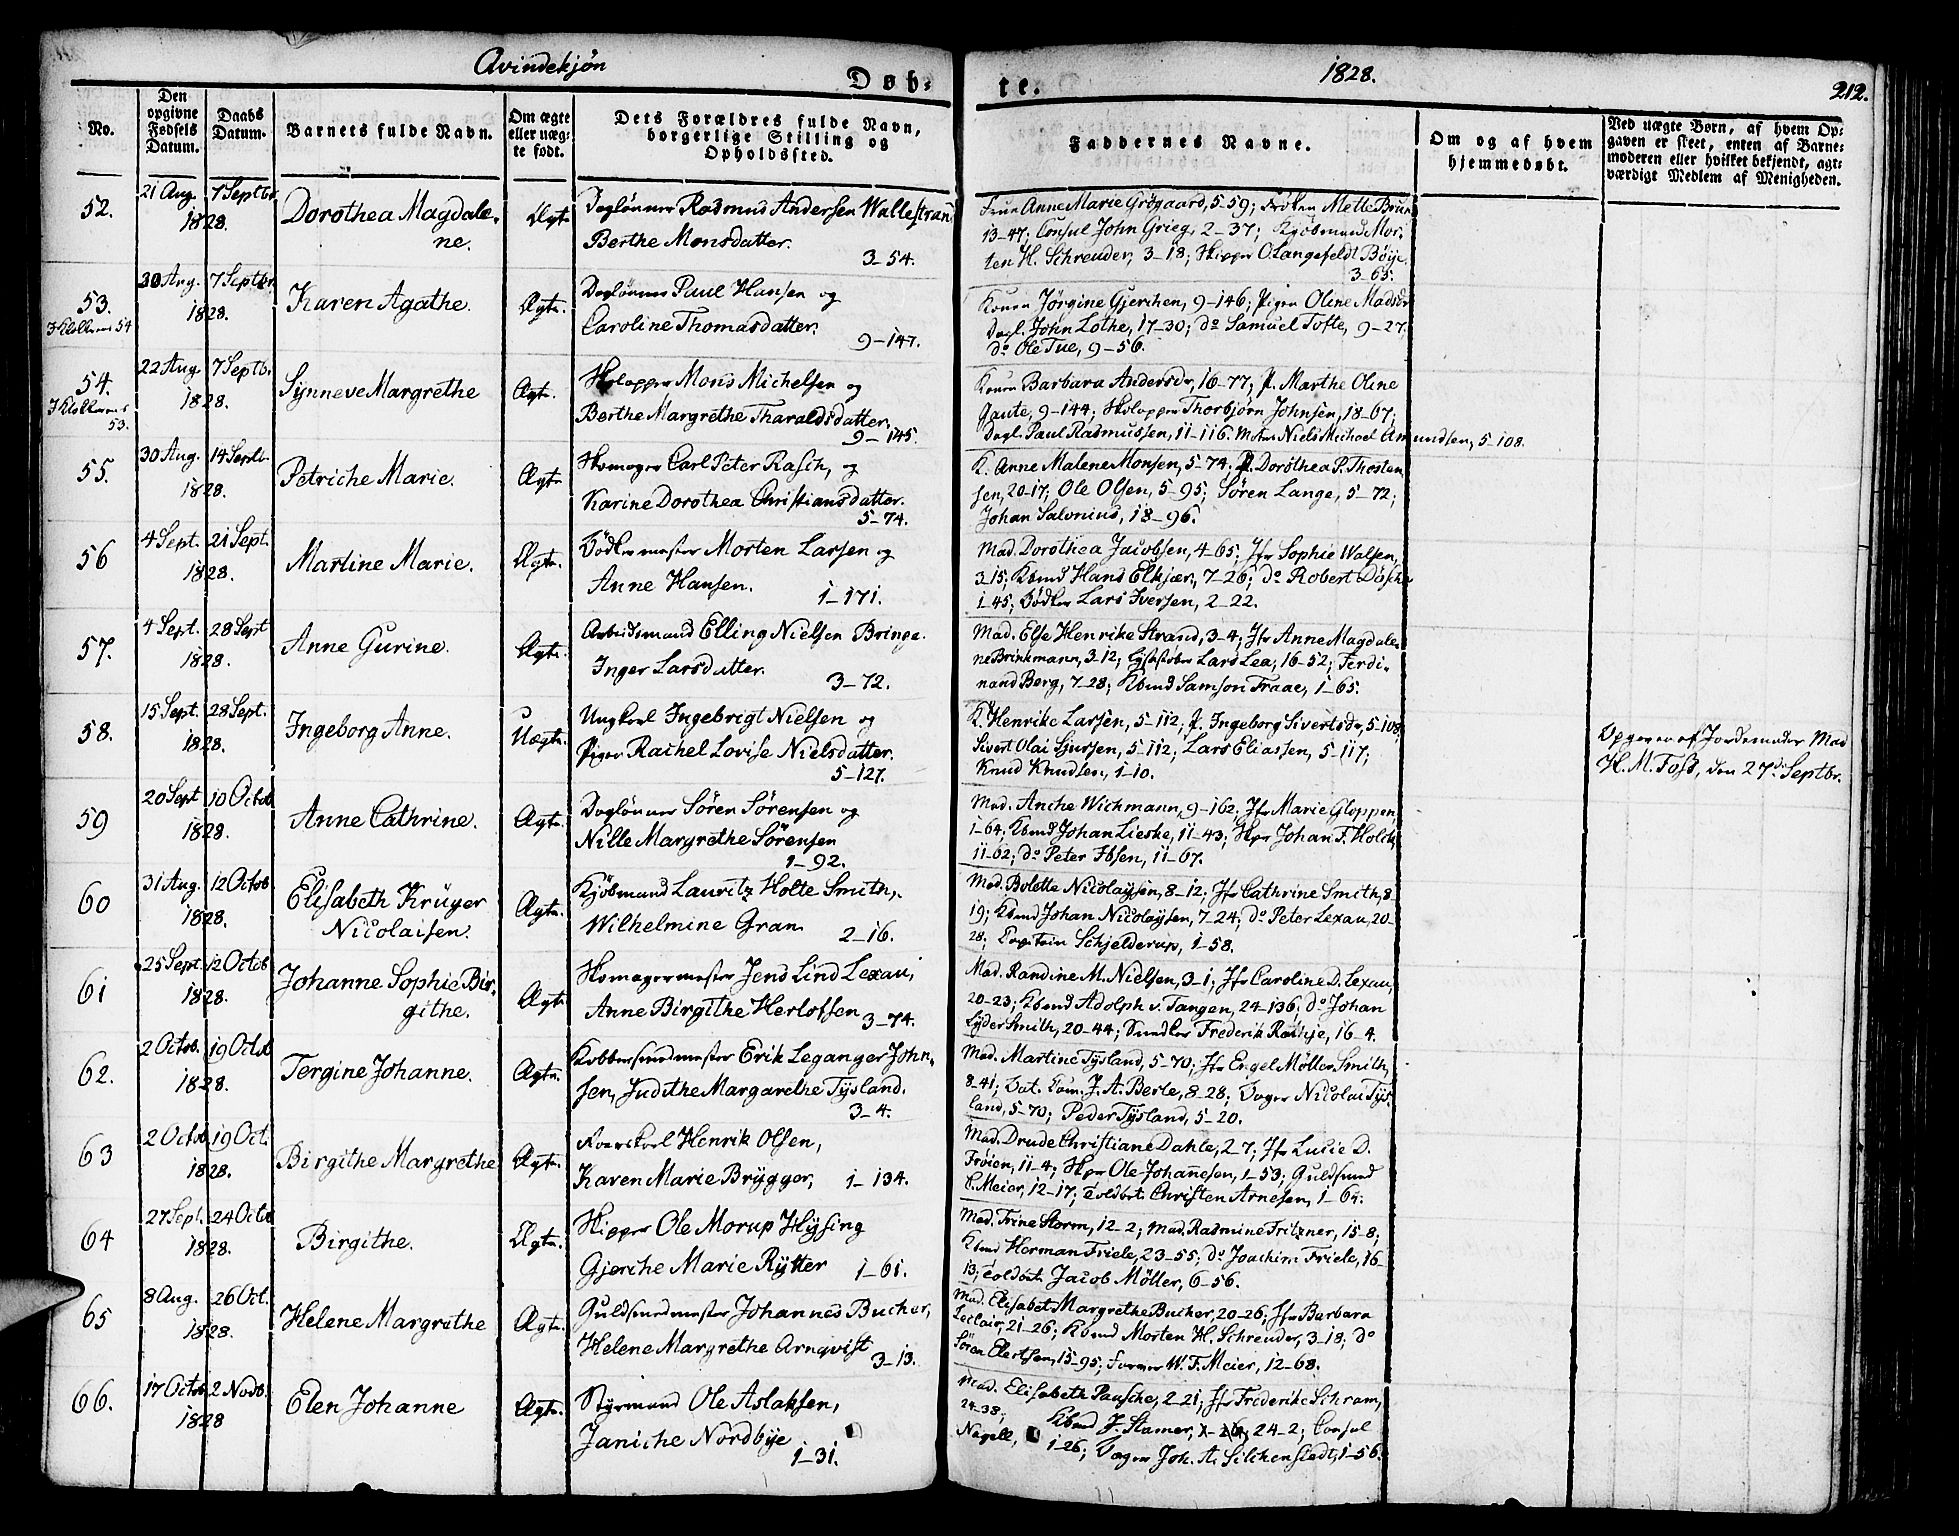 Qvindekjøn
Døb-
te.
1828.
212.
No.
Den
opgivne
Fødsels
Datum.
Daabs
Datum.
Barnets fulde Navn.
Om ægte
eller uæg-
te født.
Dets Forældres fulde Navn,
borgerlige Stilling og
Opholdssted.
Faddernes Navne.
Om og af hvem
hjemmedøbt.
Ved uægte Børn, af hvem Op-
gaven er skeet, enten af Barne-
moderen eller hvilket bekjendt, agt-
værdigt Medlem af Menigheden.
52.
21 Aug. 7 Septbr.
1828.
Dorothea Magdale-
ne.
Ægte.
Daglønner Rasmus Andersen Wallestrand
Berthe Monsdatter.
3-54.
Frue Anne Marie Grögaard, 5-59; Frøken Mette Brun
13-47; Consul John Grieg, 2-37; Kjøbmand Mor-
ten H. Schreuder, 3-18; Skipper O. Langefeldt Böije,
3-65.
53.
I Klokkerens 54
30 Aug. 7 Septbr.
1828.
Karen Agathe.
Ægte.
Daglønner Paul Hansen og
Caroline Thomasdatter.
9-147.
Konen Jørgine Gjerchen, 9-146; Pigen Oline Madsdr
Dagl. John Lothe, 17-30; do Samuel Tofte, 9-27.
do Ole Tue, 9-56.
54.
I Klokkerens
53.
22 Aug. 7 Septbr.
1828.
Synneve Margrethe
Ægte.
Skolapper Mons Michelsen og
Berthe Margrethe Tharaldsdatter,
9-145.
Konen Barbara Andersdr, 16-77; P. Marthe Oline
Gaute, 9-144; Skolapper Thorbjørn Johnsen, 18-67;
Dagl. Paul Rasmussen, 11-116. Niels Michael Amundsen, 5-108.
55.
30 Aug. 14 Septbr.
1828.
Petriche Marie.
Ægte
Skomager Carl Peter Rasch, og
Karine Dorothea Christiansdatter.
5-74.
K. Anne Malene Monsen, 5-74. P. Dorothea P. Thosten
sen, 20-17; Ole Olsen, 5-95; Søren Lange, 5-72;
Johan Salvnius, 18-96.
56
4 Sept. 21 Sept.
1828.
Martine Marie.
Ægte.
Bödkermester Morten Larsen og
Anne Hansen.
1-171.
Mad. Dorothea Jacobsen, 4-65; Jfr Sophie Walsen,
3-15; Kbmd Hans Elkjær, 7-26; do Robert Däscher
1-45; Bödker Lars Iversen, 2-22.
57.
4 Sept. 28 Sept
1828.
Anne Gurine.
Ægte.
Arbeidsmand Elling Nielsen Bringe.
Inger Larsdatter.
3-72.
Mad. Else Henrike Strand, 3-4; Jfr Anne Magdale-
ne Brinkmann, 3-12; Lysestöber Lars Lea, 16-52; Ferdi-
nand Berg, 7-28; Kbmd Samson Traae, 1-65.
58.
15 Sept. 28 Sept.
1828.
Ingeborg Anne.
Uægte.
Ungkarl Ingebrigt Nielsen og
Pigen Rachel Lovise Nielsdatter.
5-127.
K. Henrike Larsen, 5-112; P. Ingeborg Sivertsdr, 5-108.
Sivert Olai Sjursen, 5-112; Lars Eliassen, 5-117;
Knud Knudsen, 1-10.
Opgivet af Jordemoder Mad
H. M. Foss, den 27de Septbr.
59
20 Sept 10 Octob
1828.
Anne Cathrine.
Ægte.
Daglønner Søren Sørensen og
Nille Margrethe Sørensen
1-92.
Mad. Anche Wichmann, 9-162, Jfr Marie Gloppen,
1-64; Kbmd Johan Lieske, 11-43; Skpr Johan F. Holck,
11-62; do Peter Ibsen, 11-67.
60
31 Aug. 12 Octob
1828.
Elisabeth Krüger
Nicolaisen.
Ægte.
Kjöbmand Lauritz Holte Smith,
Wilhelmine Gran
2-16.
Mad. Bolette Nicolaysen, 8-12; Jfr Cathrine Smith, 8
19; Kbmd Johan Nicolaysen, 7-24; do Peter Lexau, 20-
28; Capitain Schjelderup, 1-58.
61
25 Sept. 12 Octob
1828.
Johanne Sophie Bir-
githe.
Ægte
Skomagermester Jens Lind Lexau,
Anne Birgithe Herlofsen
3-74.
Mad. Randine M. Nielsen, 3-1; Jfr Caroline D. Lexau,
20-23; Kbmd Adolph v. Tangen, 24-136; do Johan
Lyder Smith, 20-44; Snedker Frederik Rathje, 16-4.
62.
2 Octob. 19 Octob
1828.
Tergine Johanne.
Ægte.
Kobbersmedmester Erik Leganger John-
sen, Judithe Margarethe Tysland.
3-4.
Mad. Martine Tysland, 5-70; Jfr Engel Møller Smith,
8-41; J. A. Berle, 8-28; Bager Nicolai Tys-
land, 5-70; Peder Tysland, 5-20.
63
2 Octob 19 Oct.
1828.
Birgithe Margrethe
Ægte.
Henrik Olsen,
Karen Marie Brygger,
1-134.
Mad. Drude Christiane Dahle, 2-7; Jfr Lucie D.
Frøien, 11-4; Skpr Ole Johannesen, 1-53; Guldsmed
C. Meier, 12-17; Toldbet. Christen Arnesen, 1-64.
64
27 Sept. 24 Octob
1828.
Birgithe.
Ægte.
Skipper Ole Morup Hysing
Gjerche Marie Rytter
1-61.
Mad. Trine Storm, 12-2; Mad. Rasmine Fritzner, 15-8;
Kbmd Herman Friele, 23-55; do Joachim Friele, 16-
13; Toldbet. Jacob Möller, 6-56.
65
8 Aug. 26 Oct.
1828.
Helene Margrethe
Ægte.
Guldsmedmester Johannes Bucher,
Helene Margrethe Arnqvist
3-13.
Mad. Elisabet Margrethe Bucher, 20-26; Jfr Barbara
Leclair, 21-26; Kbmd Morten H. Schreuder, 3-18; do
Søren Elertsen, 15-95; W. F. Meier, 12-68.
66.
17 Octob 2 Novb.
1828
Elen Johanne
Ægte.
Styrmand Ole Aslaksen,
Janiche Nordbye
1-31.
Mad. Elisabeth Pausche, 2-21; Jfr Friderike Schram,
24-38; Kbmd J. Stamer, 24-2; Consul
Nagell, 1-26; Bager Joh. A. Silchenstedt, 1-56.